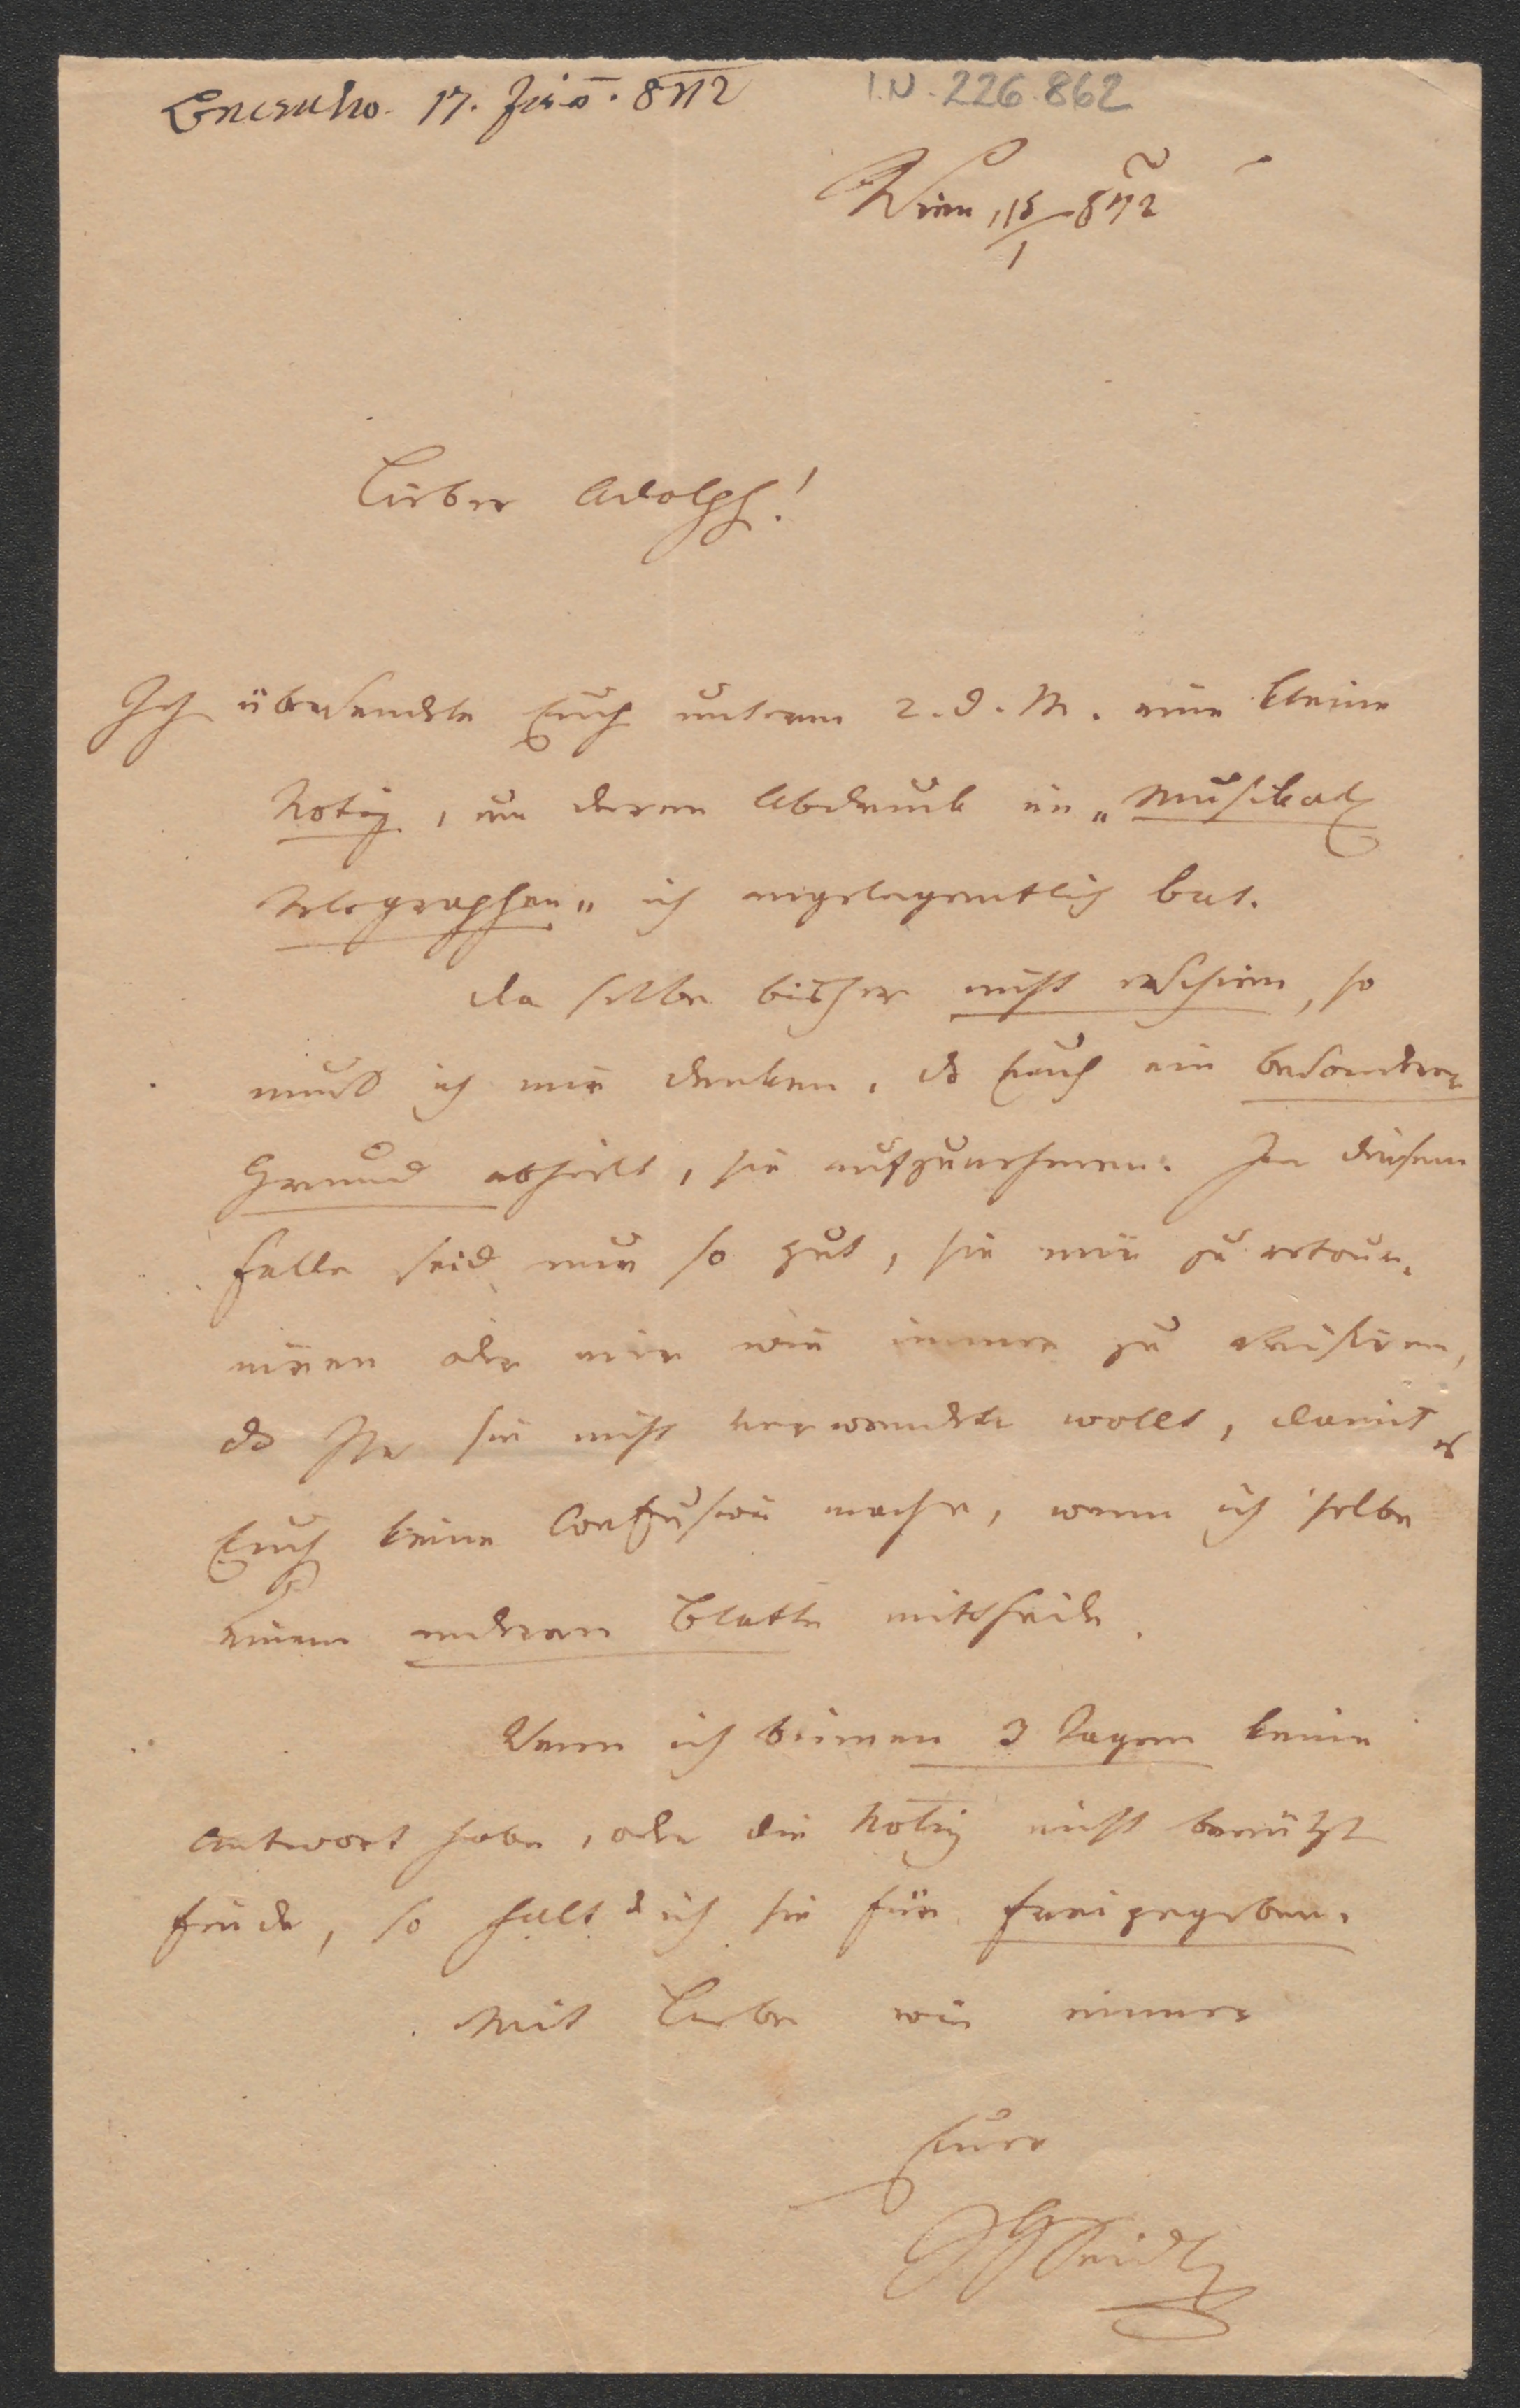 17. Jän. 872
I.N. 226.862
Wien, 15/1 872
Lieber Adolph!
Ich übersendete Euch unterm 2. d. M. eine kleine
Notiz, um deren Abdruck im „Musikal
Telegraphen" ich angelegentlich bat.
Da selbe bisher nicht erschien, so
muß ich mir denken, dß Euch ein besonderer
Grund abhielt, sie aufzunehmen. In diesem
Falle seid nur so gut, sie mir zu retour-
niren oder mir wie immer zu avisiren,
dß Ihr sie nicht verwenden wollt, damit es
Euch keine Confusion mache, wenn ich selbe
einem anderen Blatte mittheile.
Wenn ich binnen 3 Tagen keine
Antwort habe, oder die Notiz nicht benützt
finde, so halte ich sie für freigegeben.
Mit Liebe wie immer
Euer
JGSeidl